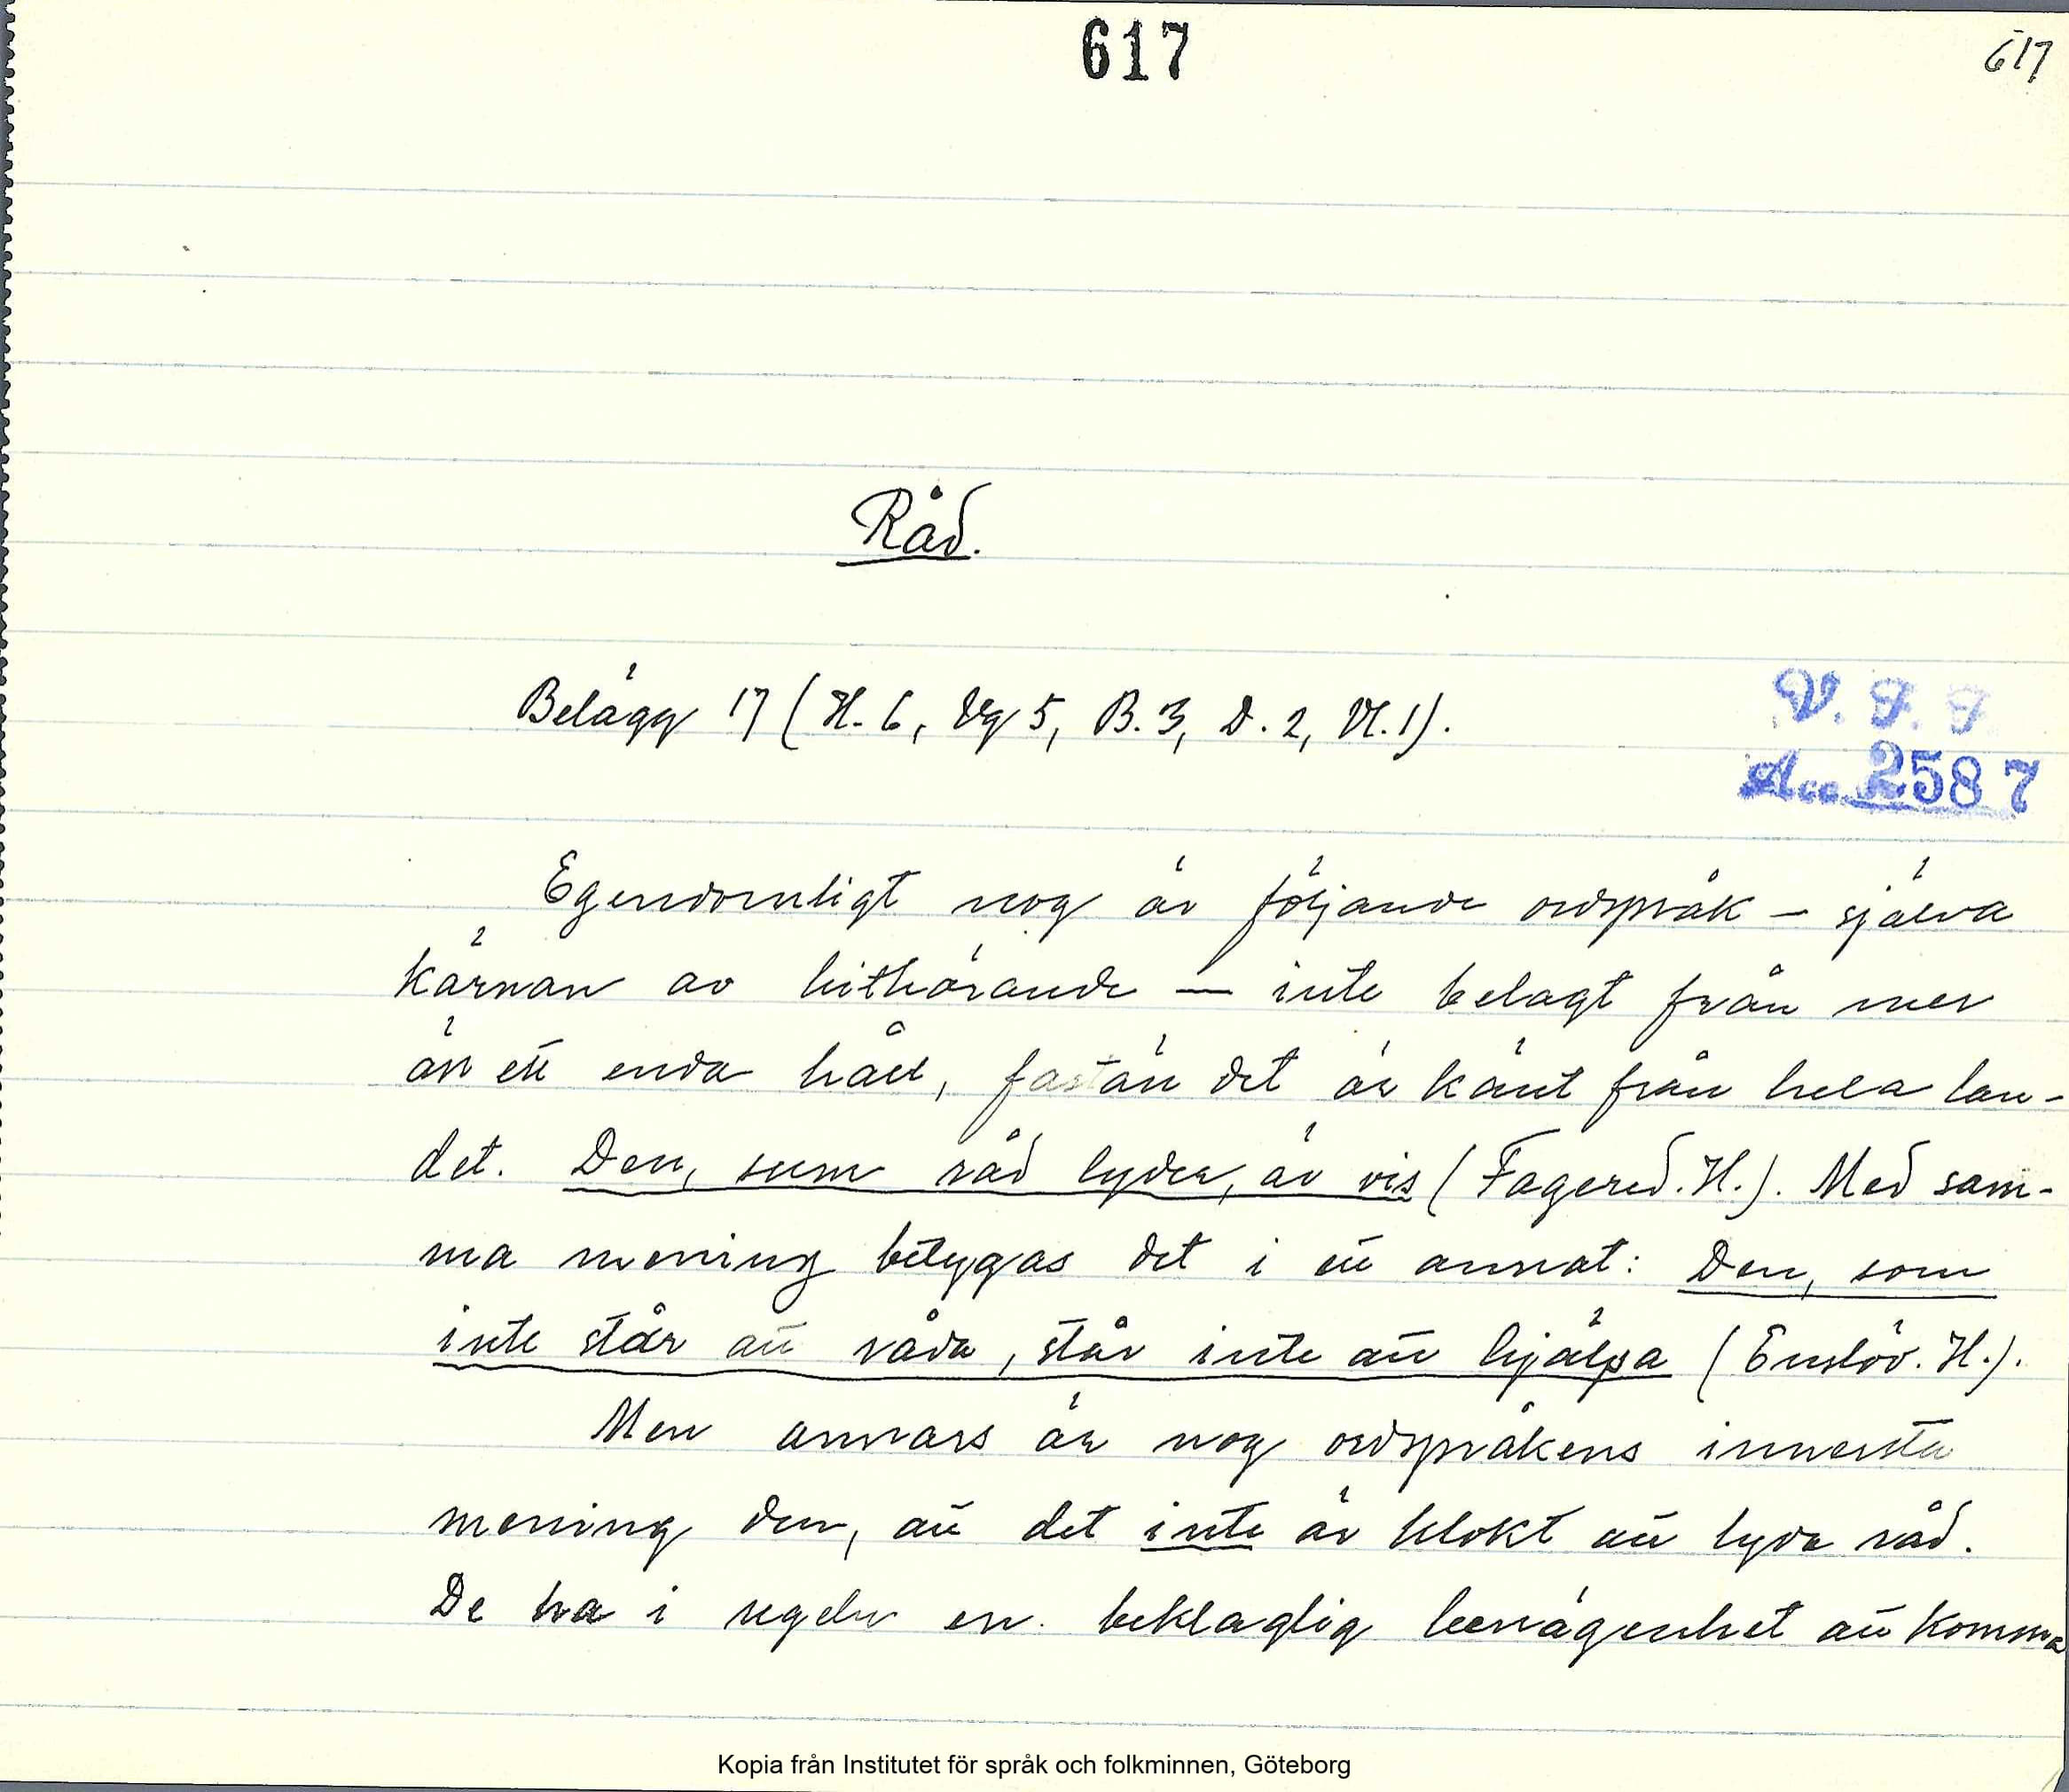 617
617
Råd.
Belägg 17 (H. 6, Vg 5, B. 3, D. 2, Vl. 1).
V. F. F
Acc. 2587
Egendomligt nog är följande ordspråk – själva
kärnan av hithörande – inte belagt från mer
än ett enda håll, fastän det är känt från hela lan-
det. Den, sum råd lyder, är vis (Fagered. H.). Med sam-
ma mening betygas det i ett annat: Den, som
inte står att råda, står inte att hjälpa (Enslöv. H.).
Men annars är nog ordspråkens innersta
mening den, att det inte är klokt att lyda råd.
De ha i regeln en beklaglig benägenhet att komma
Kopia från Institutet för språk och folkminnen, Göteborg